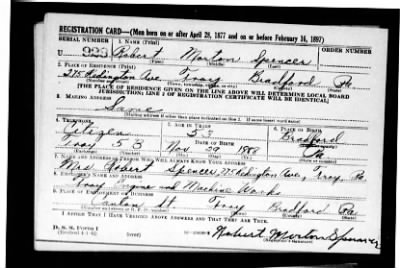 REGISTRATION CARD—(Men born on or after April 28, 1877 and on or before February 16, 1897)
SERIAL NUMBER 1. NAME (Print) ORDER NUMBER
U 923 Robert Morton Spencer
(First) (Middle) (Last)
2. PLACE OF RESIDENCE (Print)
275 Redington Ave. Troy Bradford Pa
[THE PLACE OF RESIDENCE GIVEN ON THE LINE ABOVE WILL DETERMINE LOCAL BOARD
JURISDICTION; LINE 2 OF REGISTRATION CERTIFICATE WILL BE IDENTICAL]
3. MAILING ADDRESS
Same
[Mailing address if other than place indicated on line 2. If same insert word same]
4. TELEPHONE 5. AGE IN YEARS 6. PLACE OF BIRTH
Citizen 53 Bradford
DATE OF BIRTH
Troy 53 Nov. 29 1888 Pa
(Exchange) (Number) (Mo.) (Day) (Yr.) (State or country)
7. NAME AND ADDRESS OF PERSON WHO WILL ALWAYS KNOW YOUR ADDRESS
Mrs Robert Spencer, 275 Redington Ave., Troy, Pa.
8. EMPLOYER'S NAME AND ADDRESS
Troy Engine and Machine Works
9. PLACE OF EMPLOYMENT OR BUSINESS
Canton St. Troy Bradford Pa
I AFFIRM THAT I HAVE VERIFIED ABOVE ANSWERS AND THAT THEY ARE TRUE.
D. S. S. FORM 1
(Revised 4-1-42) (over)
Robert Morton Spencer
(Registrant's signature)